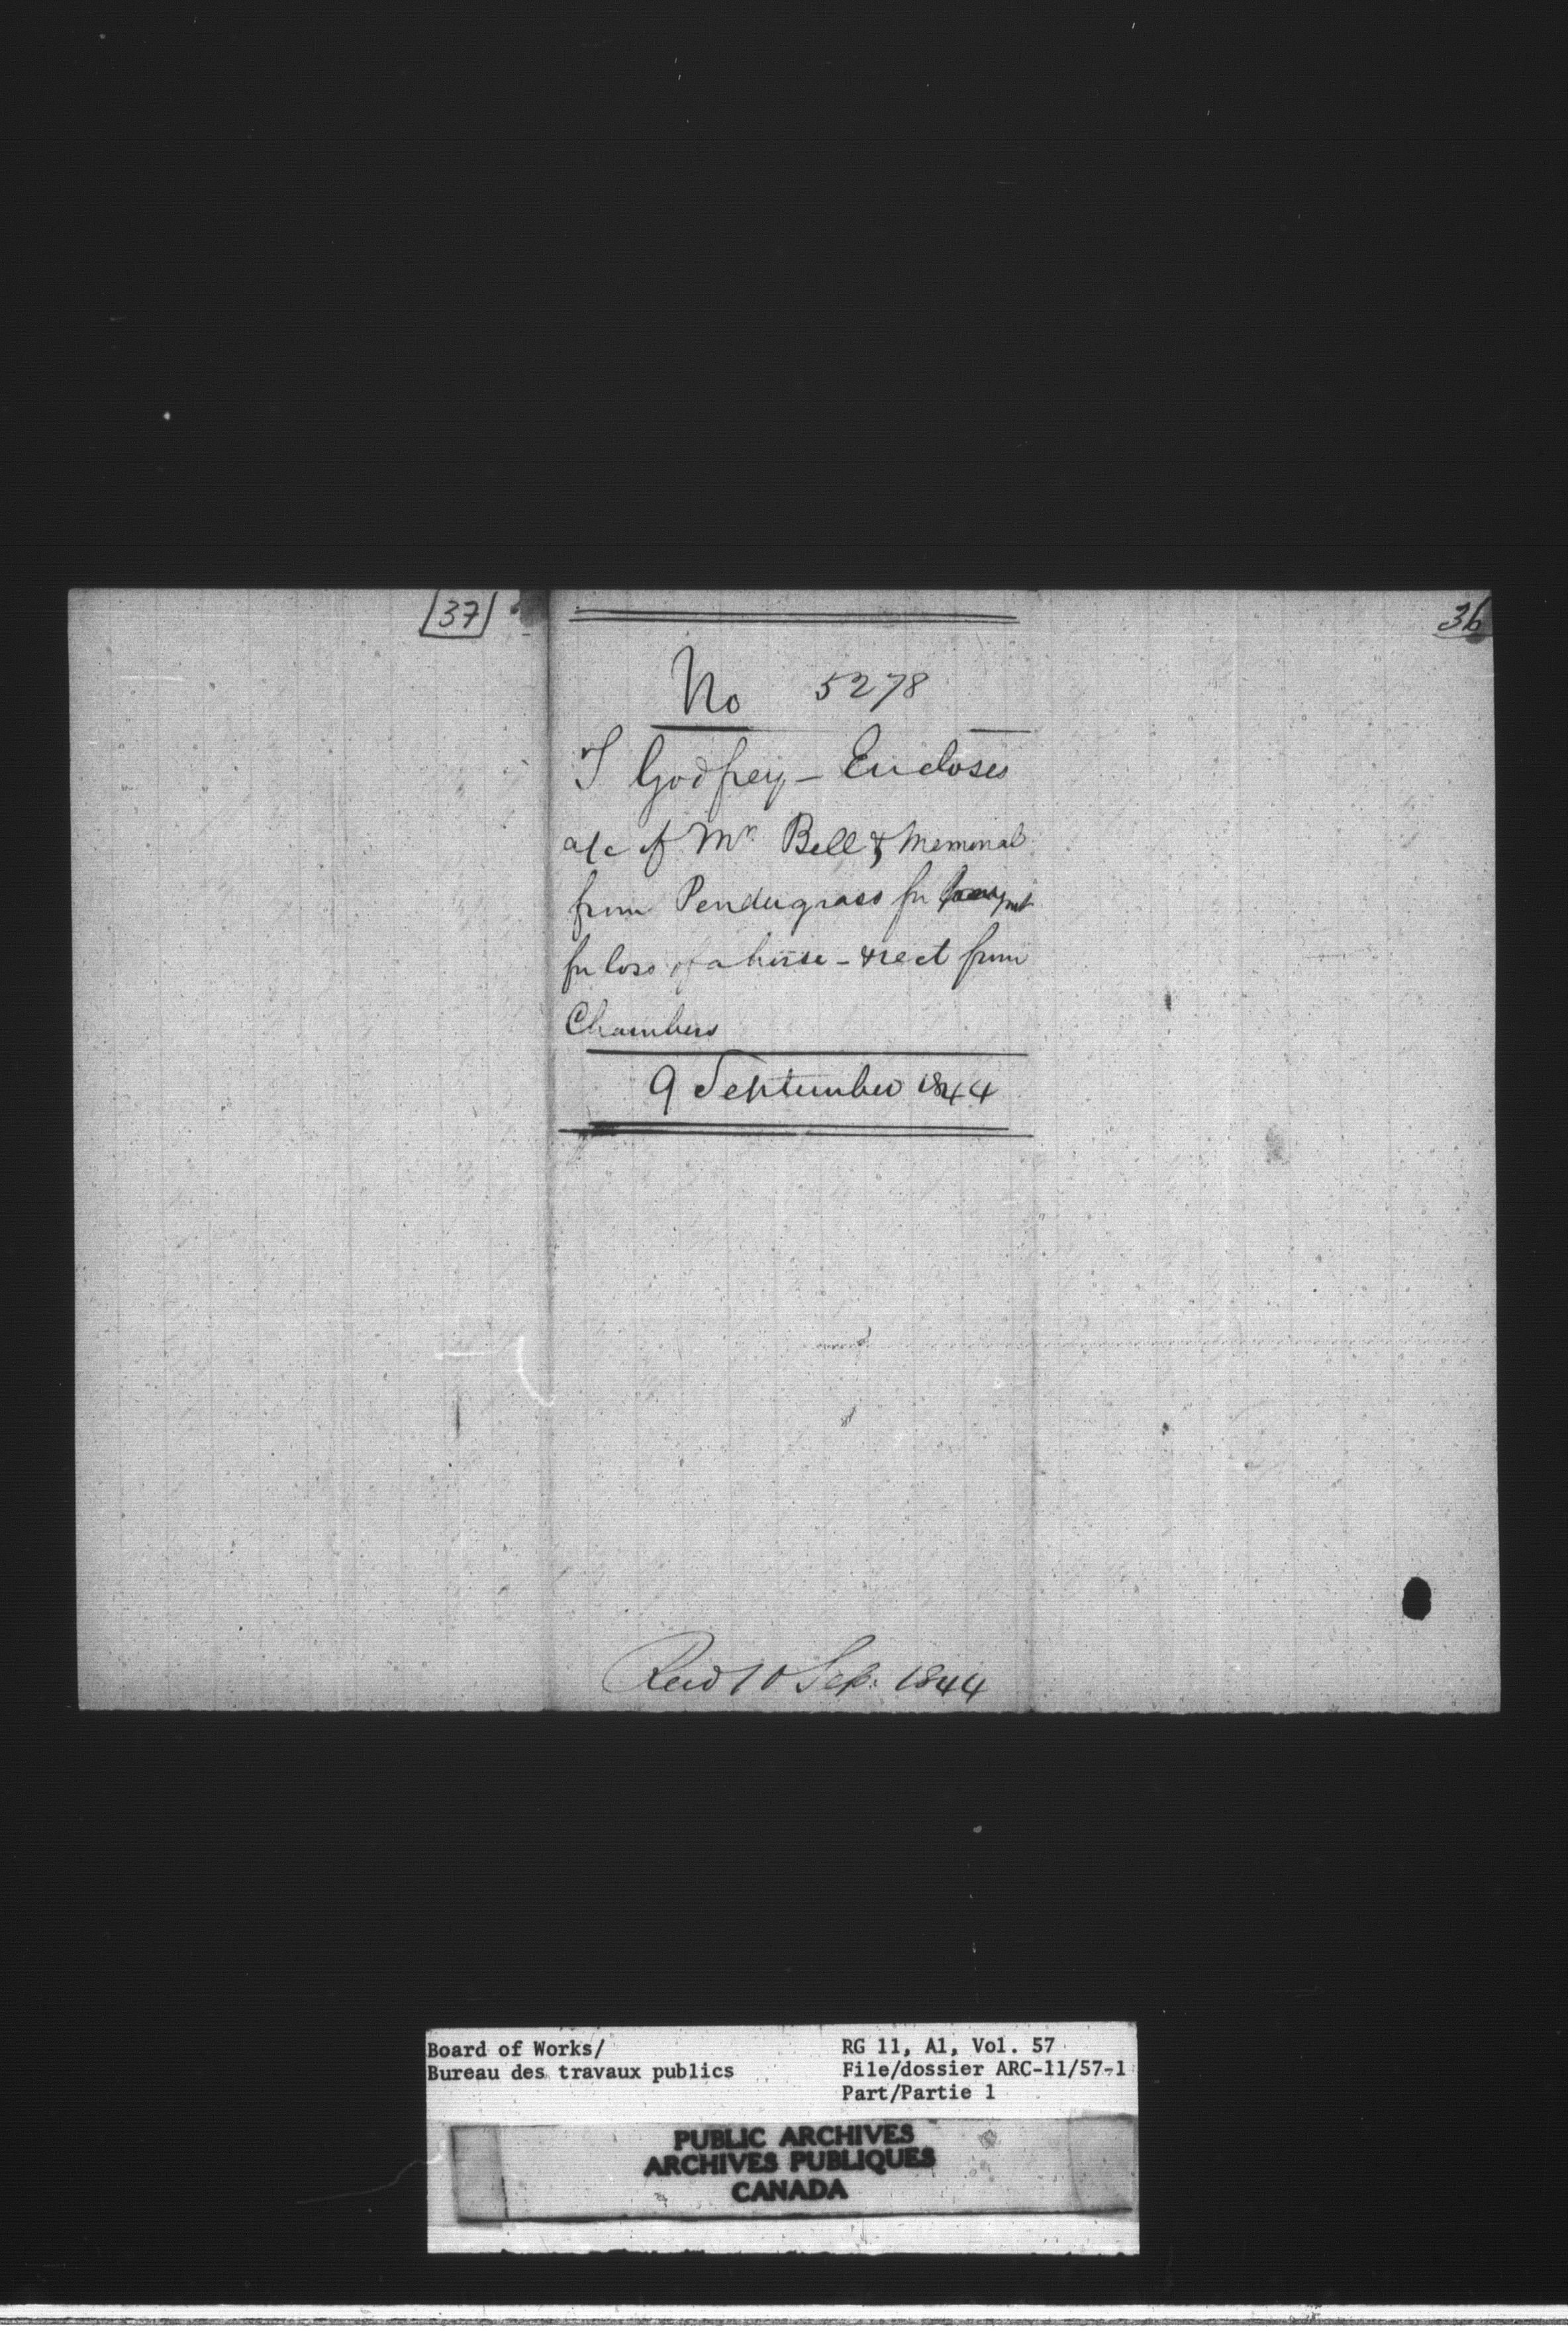 37
36
No 5278
T Godfrey - Encloses
a/c of Mr. Bell & Memorial
from Pendergrass for paymt
for loss of a horse - & rect from
Chambers
9 September 1844
Recd 10 Sep: 1844
Board of Works/
Bureau des travaux publics
RG 11, A1, Vol. 57
File/dossier ARC-11/57-1
Part/Partie 1
PUBLIC ARCHIVES
ARCHIVES PUBLIQUES
CANADA